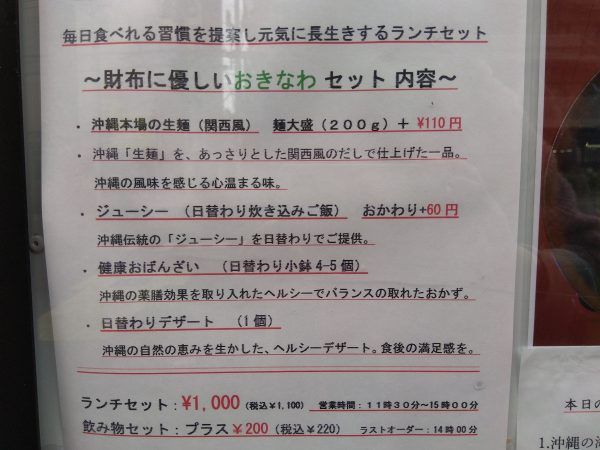 毎日食べれる習慣を提案し元気に長生きするランチセット
～財布に優しいおきなわ セット 内容～
・ 沖縄本場の生麺（関西風） 麺大盛（２００ｇ）＋ ¥110円
・ 沖縄「生麺」を、あっさりとした関西風のだしで仕上げた一品。
沖縄の風味を感じる心温まる味。
・ ジューシー （日替わり炊き込みご飯） おかわり+60円
沖縄伝統の「ジューシー」を日替わりでご提供。
・ 健康おばんざい （日替わり小鉢 4-5 個）
沖縄の薬膳効果を取り入れたヘルシーでバランスの取れたおかず。
・ 日替わりデザート （1 個）
沖縄の自然の恵みを生かした、ヘルシーデザート。食後の満足感を。
ランチセット：¥1,000（税込¥1,100） 営業時間：１１時３０分～15時００分
飲み物セット：プラス¥200（税込¥220） ラストオーダー：14時００分
本日の
1.沖縄の